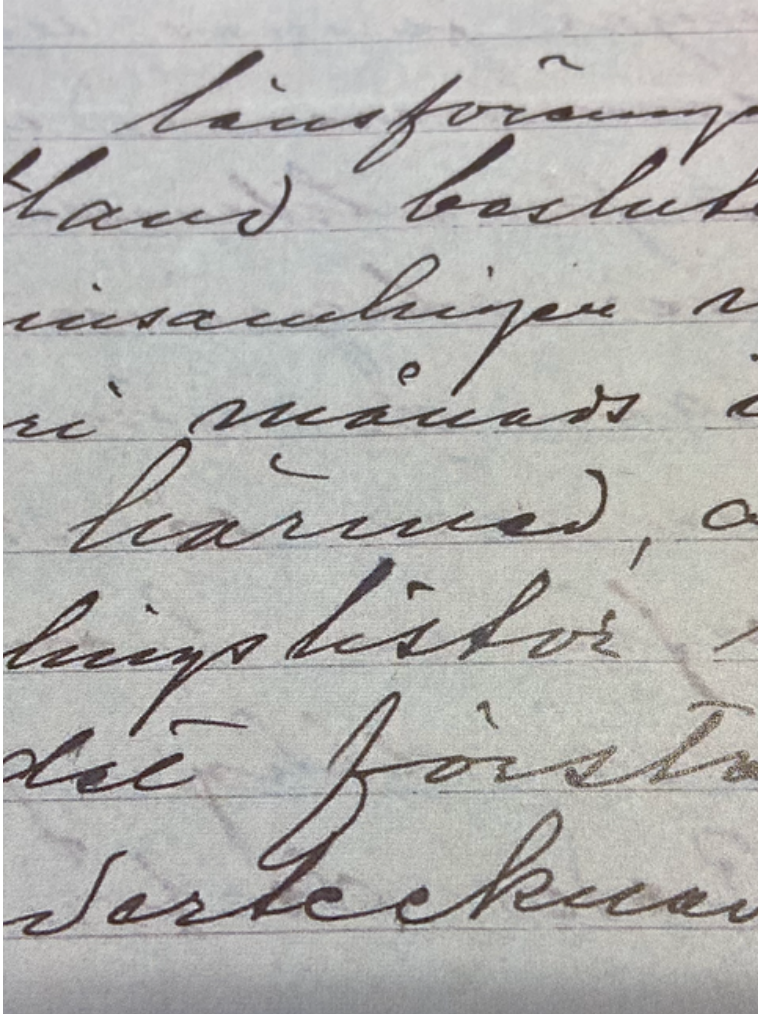 länsförening
tland beslut
insamlingar
ri månads i
härmed, a
lingslistor
det första
dertecknad